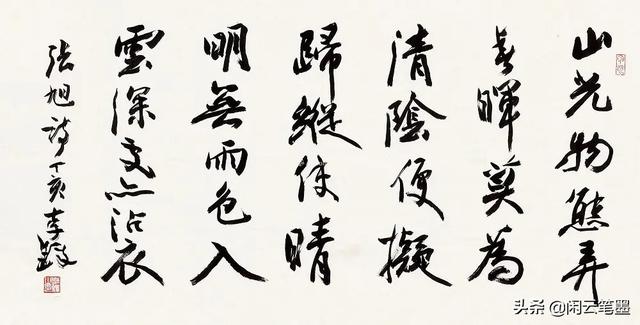 山光物態弄
春暉莫為
清陰便擬
歸縱使晴
明無雨色入
雲深處亦沾衣
張旭詩丁亥李鐸
头条 @闲云笔墨